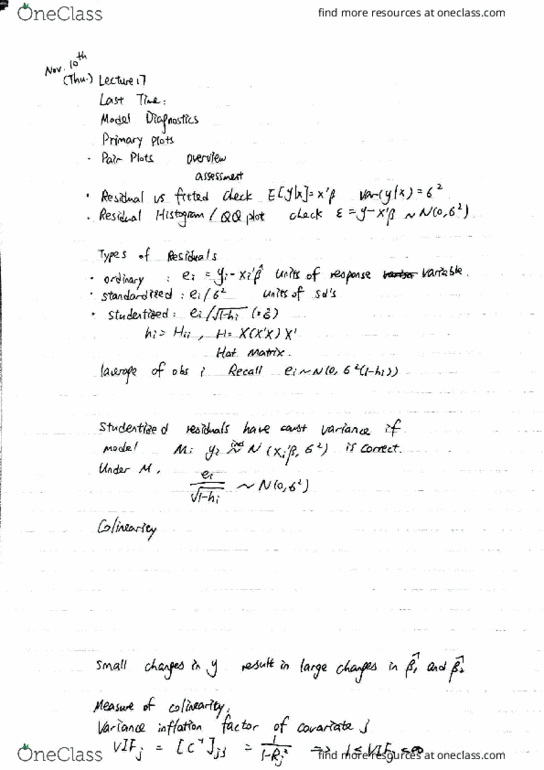 OneClass
find more resources at oneclass.com
Nov. 10th
(Thu.) Lecture 17
Last Time:
Model Diagnostics
Primary Plots
· Pair Plots overview
assessment
· Residual vs fitted check E[y|x]=x'β var(y|x)=σ²
· Residual Histogram / QQ plot check ε=y-x'β ~ N(0,σ²)
Types of Residuals
· ordinary : ei = yi - xi'β̂ units of response variable.
· standardized : ei/σ² units of sd's
· studentized : ei/√1-hi (=ê)
hi = Hii , H= X(X'X)X'
Hat Matrix.
laverage of obs i Recall ei~N(0, σ²(1-hi))
Studentized residuals have const variance if
model M: yi ~ind N(xi'β, σ²) is correct.
Under M,
ei/√1-hi ~ N(0,σ²)
Colinearity
Small changes in y result in large changes in β̂1 and β̂2
Measure of colinearity:
Variance inflation factor of covariate j
VIFj = [C⁻¹]jj = 1/1-Rj² => 1≤VIFj<∞
OneClass
find more resources at oneclass.com